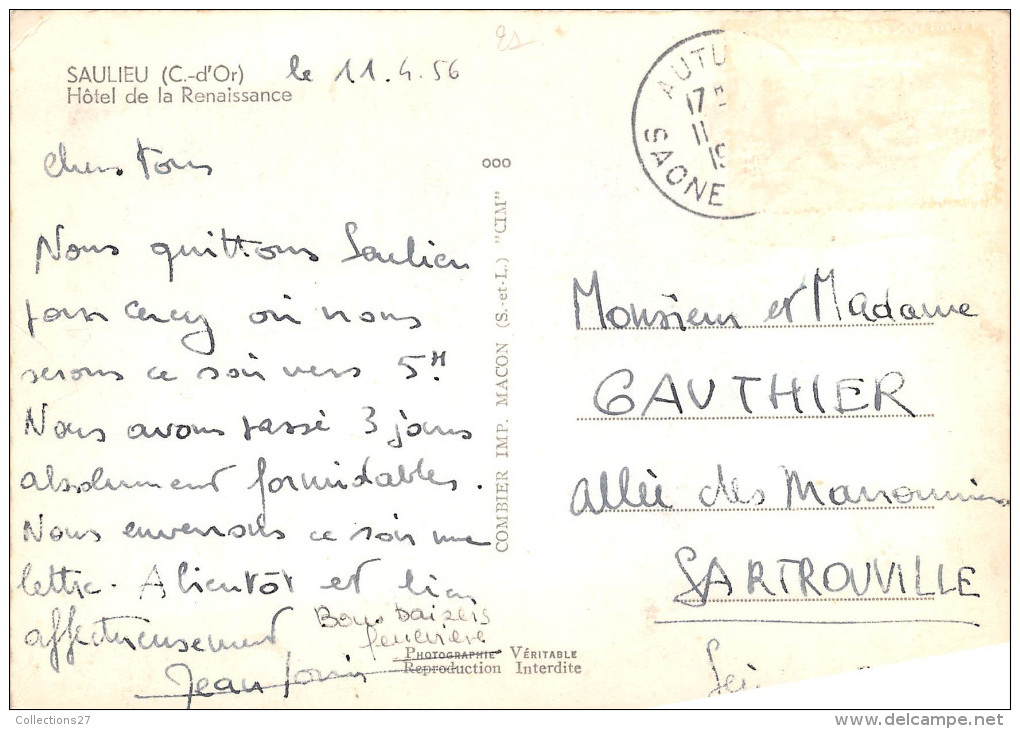 SAULIEU (C.-d'Or) le 11.4.56
Hôtel de la Renaissance
Chers Tous
Nous quittons Saulieu
pour Cercy où nous
serons ce soir vers 5H.
Nous avons passé 3 jours
absolument formidables.
Nous enverrons ce soir une
lettre. A bientôt et bien
affectueusement
Bons baisers
Geneviève
Jean Louis
ooo
COMBIER IMP. MACON (S.-et-L.) "CIM"
PHOTOGRAPHIE VÉRITABLE
Reproduction Interdite
AUTU
17
11
SAONE
Monsieur et Madame
GAUTHIER
allée des Marronniers
SARTROUVILLE
Sei
Collections27
www.delcampe.net